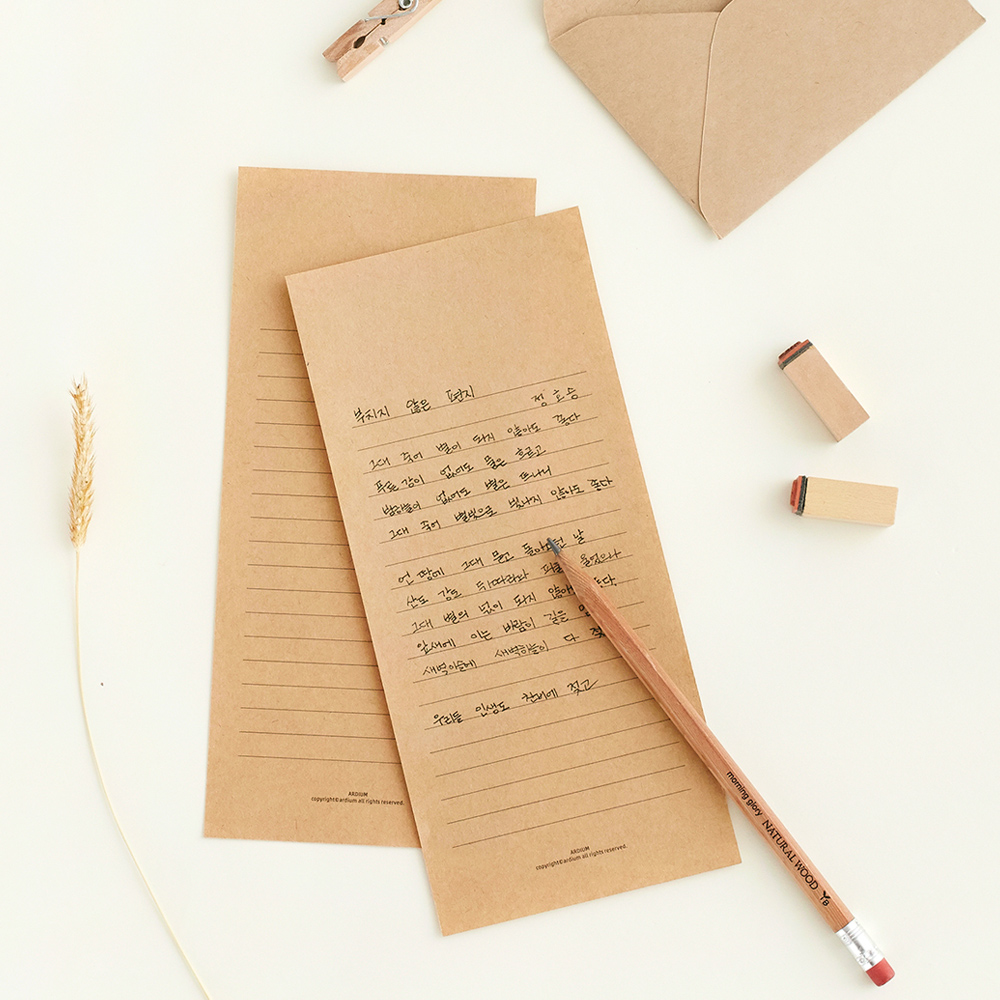 부치지 않은 편지 정호승
그대 죽어 별이 되지 않아도 좋다
푸른 강이 없어도 물은 흐르고
밤하늘이 없어도 별은 뜨나니
그대 죽어 별빛으로 빛나지 않아도 좋다
언 땅에 그대 묻고 돌아 날
산도 강도 뒤따라와 울었으나
그대 별의 넋이 되지 않아 좋다
잎새에 이는 바람이 길을
새벽이슬에 새벽하늘이 다
우리들 인생도 찬비에 젖고
ARDIUM
copyright©ardium all rights reserved.
ARDIUM
copyright©ardium all rights reserved.
morning glory NATURAL WOOD